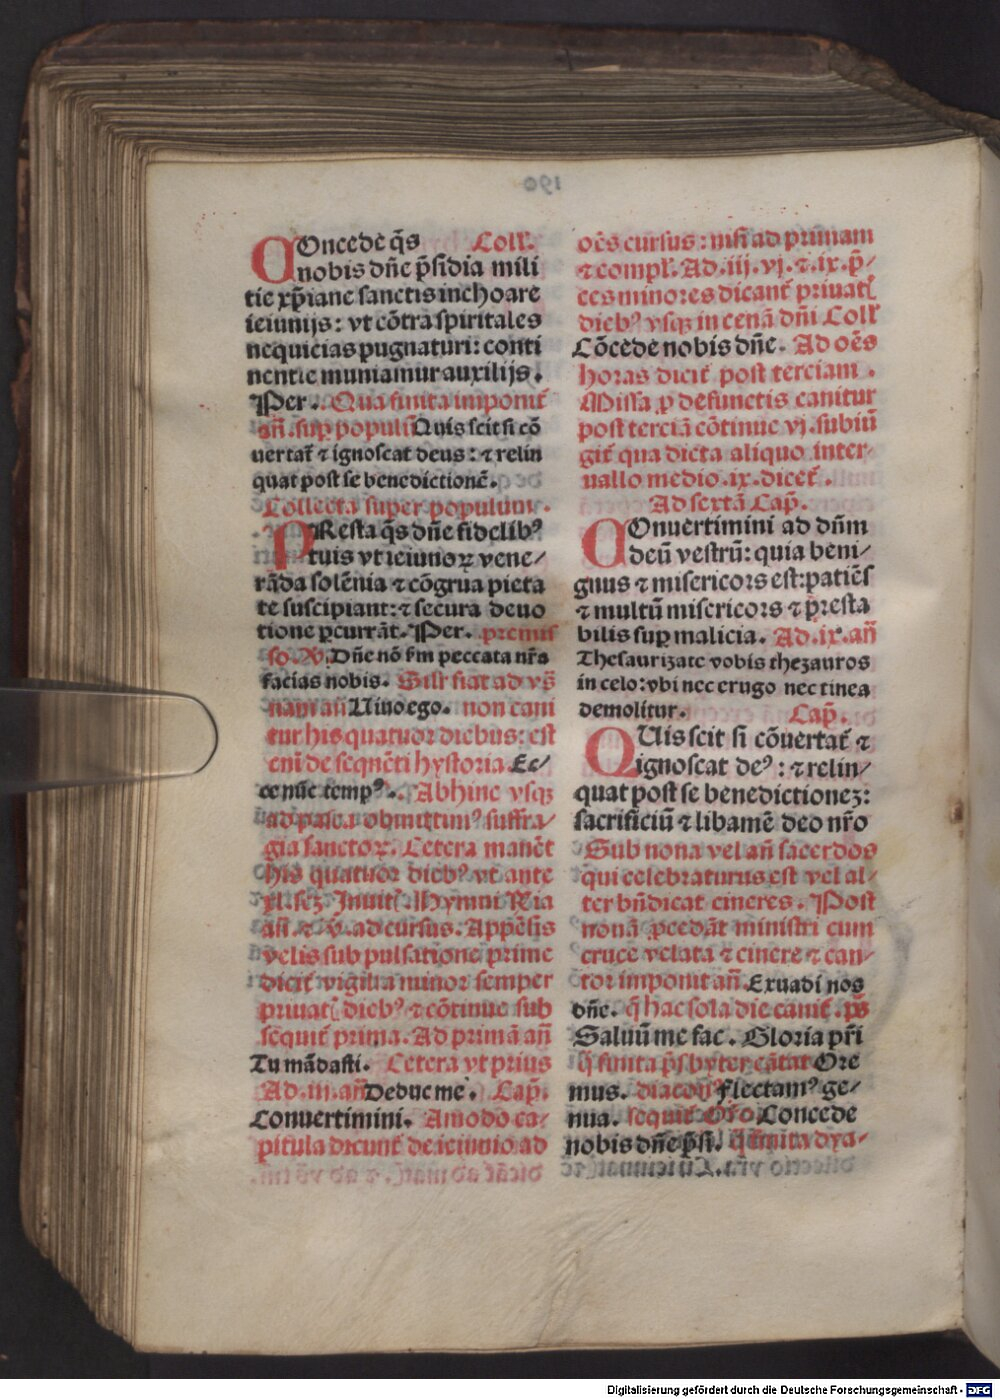 Concede q̄s Coll'.
nobis dn̄e p̄sidia mili
tie xp̄iane sanctis inchoare
ieiunijs: vt cōtra spiritales
nequicias pugnaturi: conti
nentie muniamur auxilijs.
Per. Qua finita imponit᷑
añ. sup populū Quis scit si cō
uertat᷑ ⁊ ignoscat deus: ⁊ relin
quat post se benedictionē.
Collecta super populum.
PResta q̄s dn̄e fidelibꝰ
tuis vt ieiunoꝝ vene/
rāda solēnia ⁊ cōgrua pieta
te suscipiant: ⁊ secura deuo
tione ꝑcurrāt. Per. premis
so. V. Dn̄e nō s̄m peccata nr̄a
facias nobis. Silr fiat ad vs̄
nam añ Viuo ego. non cani
tur his quatuor diebus: est
eni de seqn̄ti hystoria Ec/
ce nūc tempꝰ. Abhinc vsqꝫ
ad pasca obmittimꝰ suffra/
gia sanctoꝝ. Cetera manēt
his quatuor diebꝰ vt ante
xl. sꝫ Inuit᷑. Hymni Ria
añ. ⁊ v̄. ad cursus. Appēsis
velis sub pulsatione prime
dicit᷑ vigilia minor semper
priuatꝭ diebꝰ ⁊ cōtinue sub
sequit᷑ prima. Ad primā añ
Tu mādasti. Cetera vt prius
Ad .iii. añ Deduc me. Cap̄.
Conuertimini. Amodo ca/
pitula dicunt᷑ de ieiunio ad
oēs cursus: nisi ad primam
⁊ compl'. Ad .iij. vj. ⁊ .ix. p̄/
ces minores dicant᷑ priuatꝭ
diebꝰ vsqꝫ in cenā dn̄i Coll'
Cōcede nobis dn̄e. Ad oēs
horas dicit᷑ post terciam.
Missa ꝓ defunctis canitur
post terciā cōtinue vj. subiū
git᷑ qua dicta aliquo inter
uallo medio .ix. dicet᷑.
Ad sextā Cap̄.
COnuertimini ad dn̄m
deū vestrū: quia beni/
gnus ⁊ misericors est: patiēs
⁊ multū misericors ⁊ p̄resta
bilis sup malicia. Ad .ix. añ
Thesaurizate vobis thezauros
in celo: vbi nec erugo nec tinea
demolitur. Cap̄.
QUis scit si cōuertat᷑ ⁊
ignoscat deꝰ: ⁊ relin/
quat post se benedictionez:
sacrificiū ⁊ libamē deo nr̄o
Sub nona vel añ sacerdos
qui celebraturus est vel al/
ter bn̄dicat cineres. Post
nonā ꝓcedāt ministri cum
cruce velata ⁊ cinere ⁊ can/
tor imponit añ. Exuadi nos
dn̄e. q̄ hac sola die canit᷑. p̄s
Saluū me fac. Gloria pr̄i
q̄ finita p̄sbyter cātat Ore
mus. diaconꝰ Flectamꝰ ge/
nua. sequit᷑ Oro Concede
nobis dn̄e p̄si. q̄ finita dya/